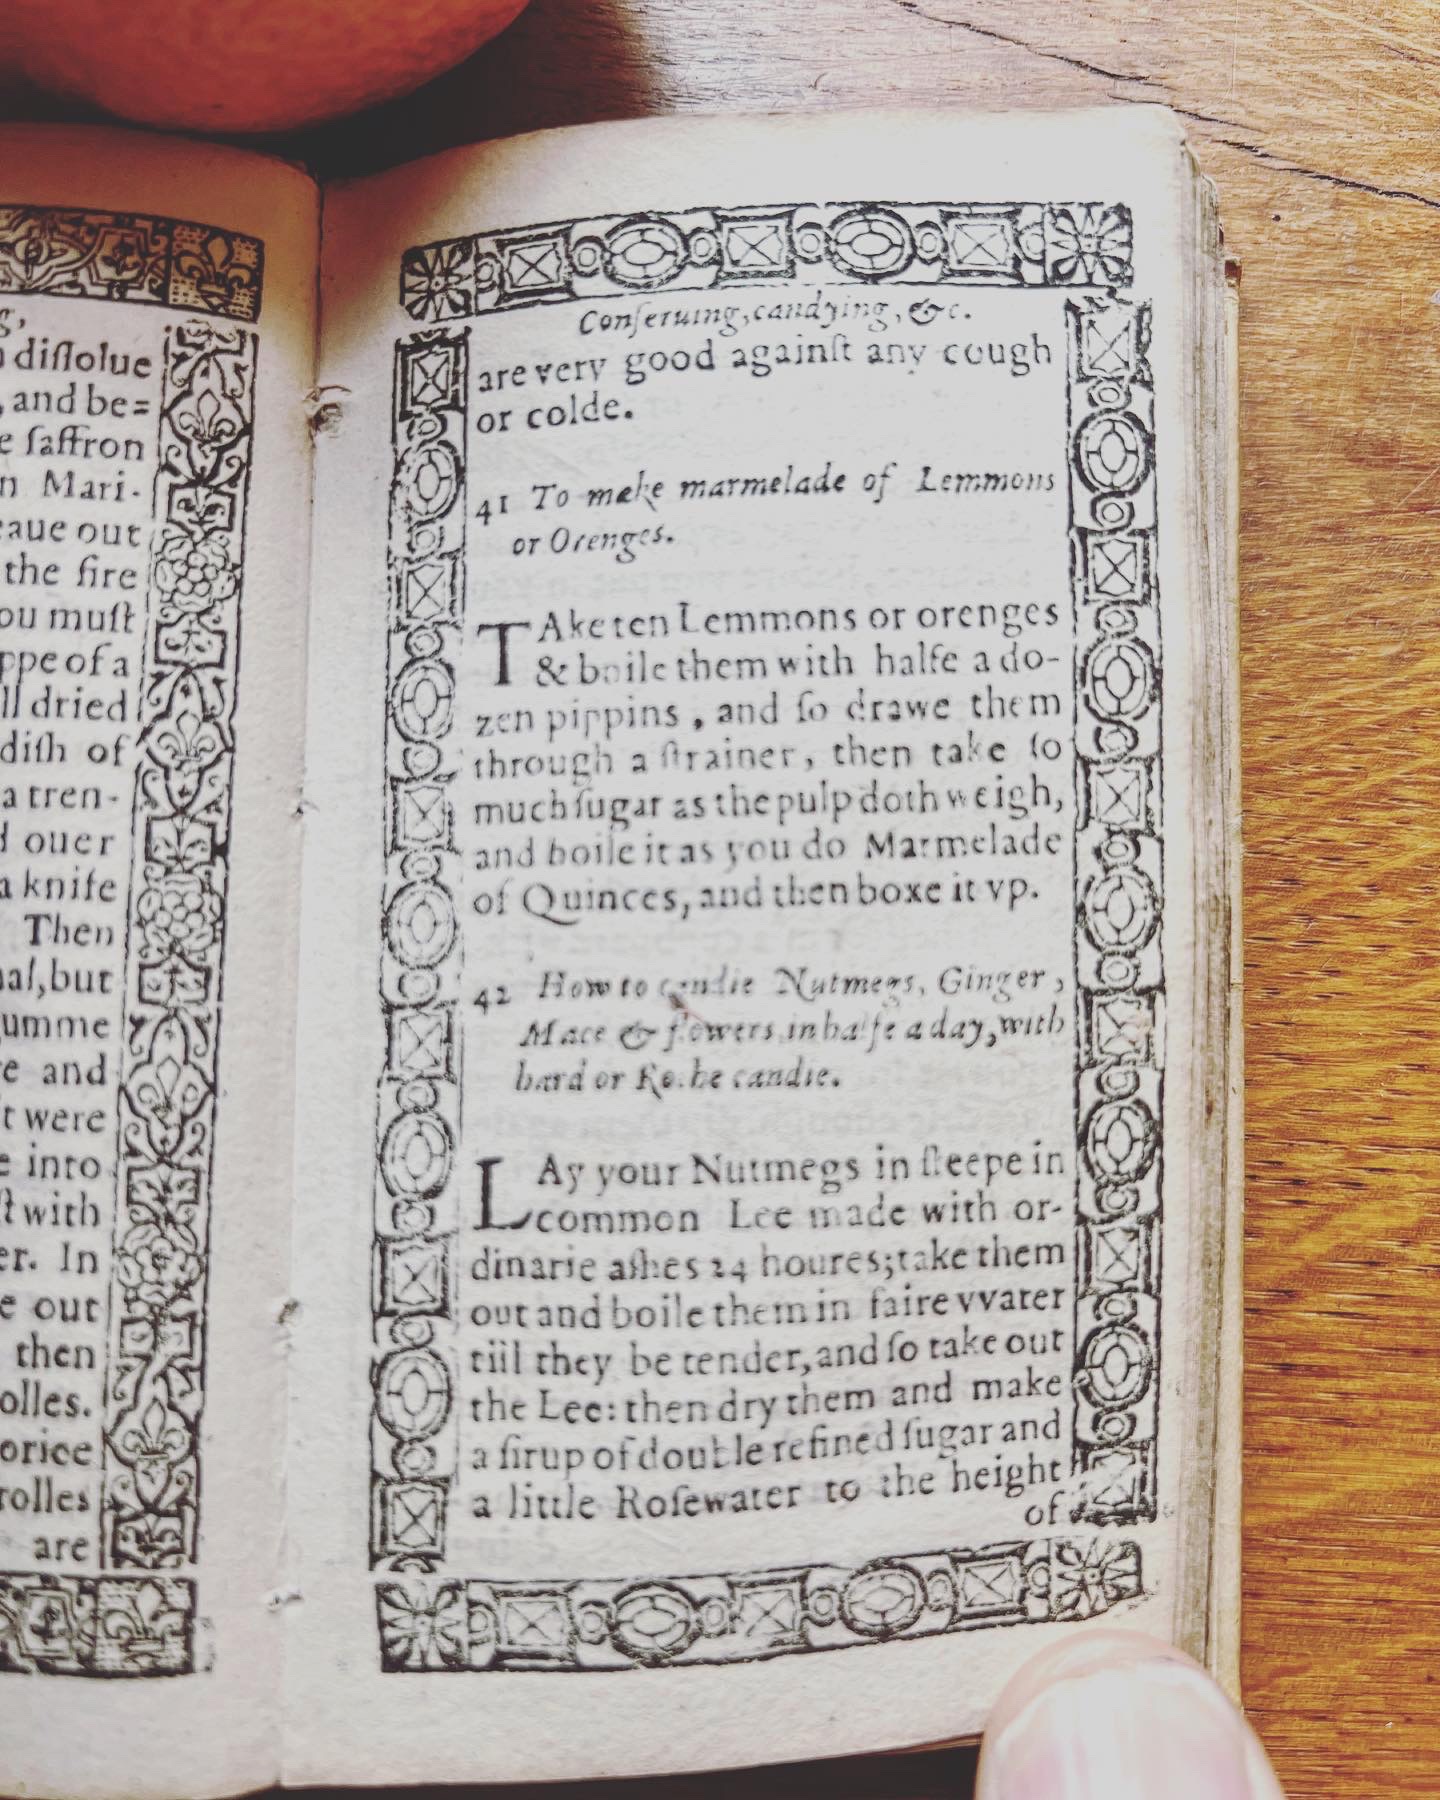 g,
dissolue
, and be=
e saffron
n Mari-
eaue out
the fire
ou must
ppe of a
ll dried
dish of
a tren-
d ouer
a knife
Then
nal, but
umme
re and
t were
e into
st with
er. In
e out
then
olles.
orice
rolles
are
Conseruing, candying, &c.
are very good against any cough
or colde.
41 To make marmelade of Lemmons
or Orenges.
TAke ten Lemmons or orenges
& boile them with halfe a do-
zen pippins, and so drawe them
through a strainer, then take so
much sugar as the pulp doth weigh,
and boile it as you do Marmelade
of Quinces, and then boxe it vp.
42 How to candie Nutmegs, Ginger,
Mace & flowers in halfe a day, with
hard or Roche candie.
LAy your Nutmegs in steepe in
common Lee made with or-
dinarie ashes 24 houres; take them
out and boile them in faire vvater
till they be tender, and so take out
the Lee: then dry them and make
a sirup of double refined sugar and
a little Rosewater to the height
of